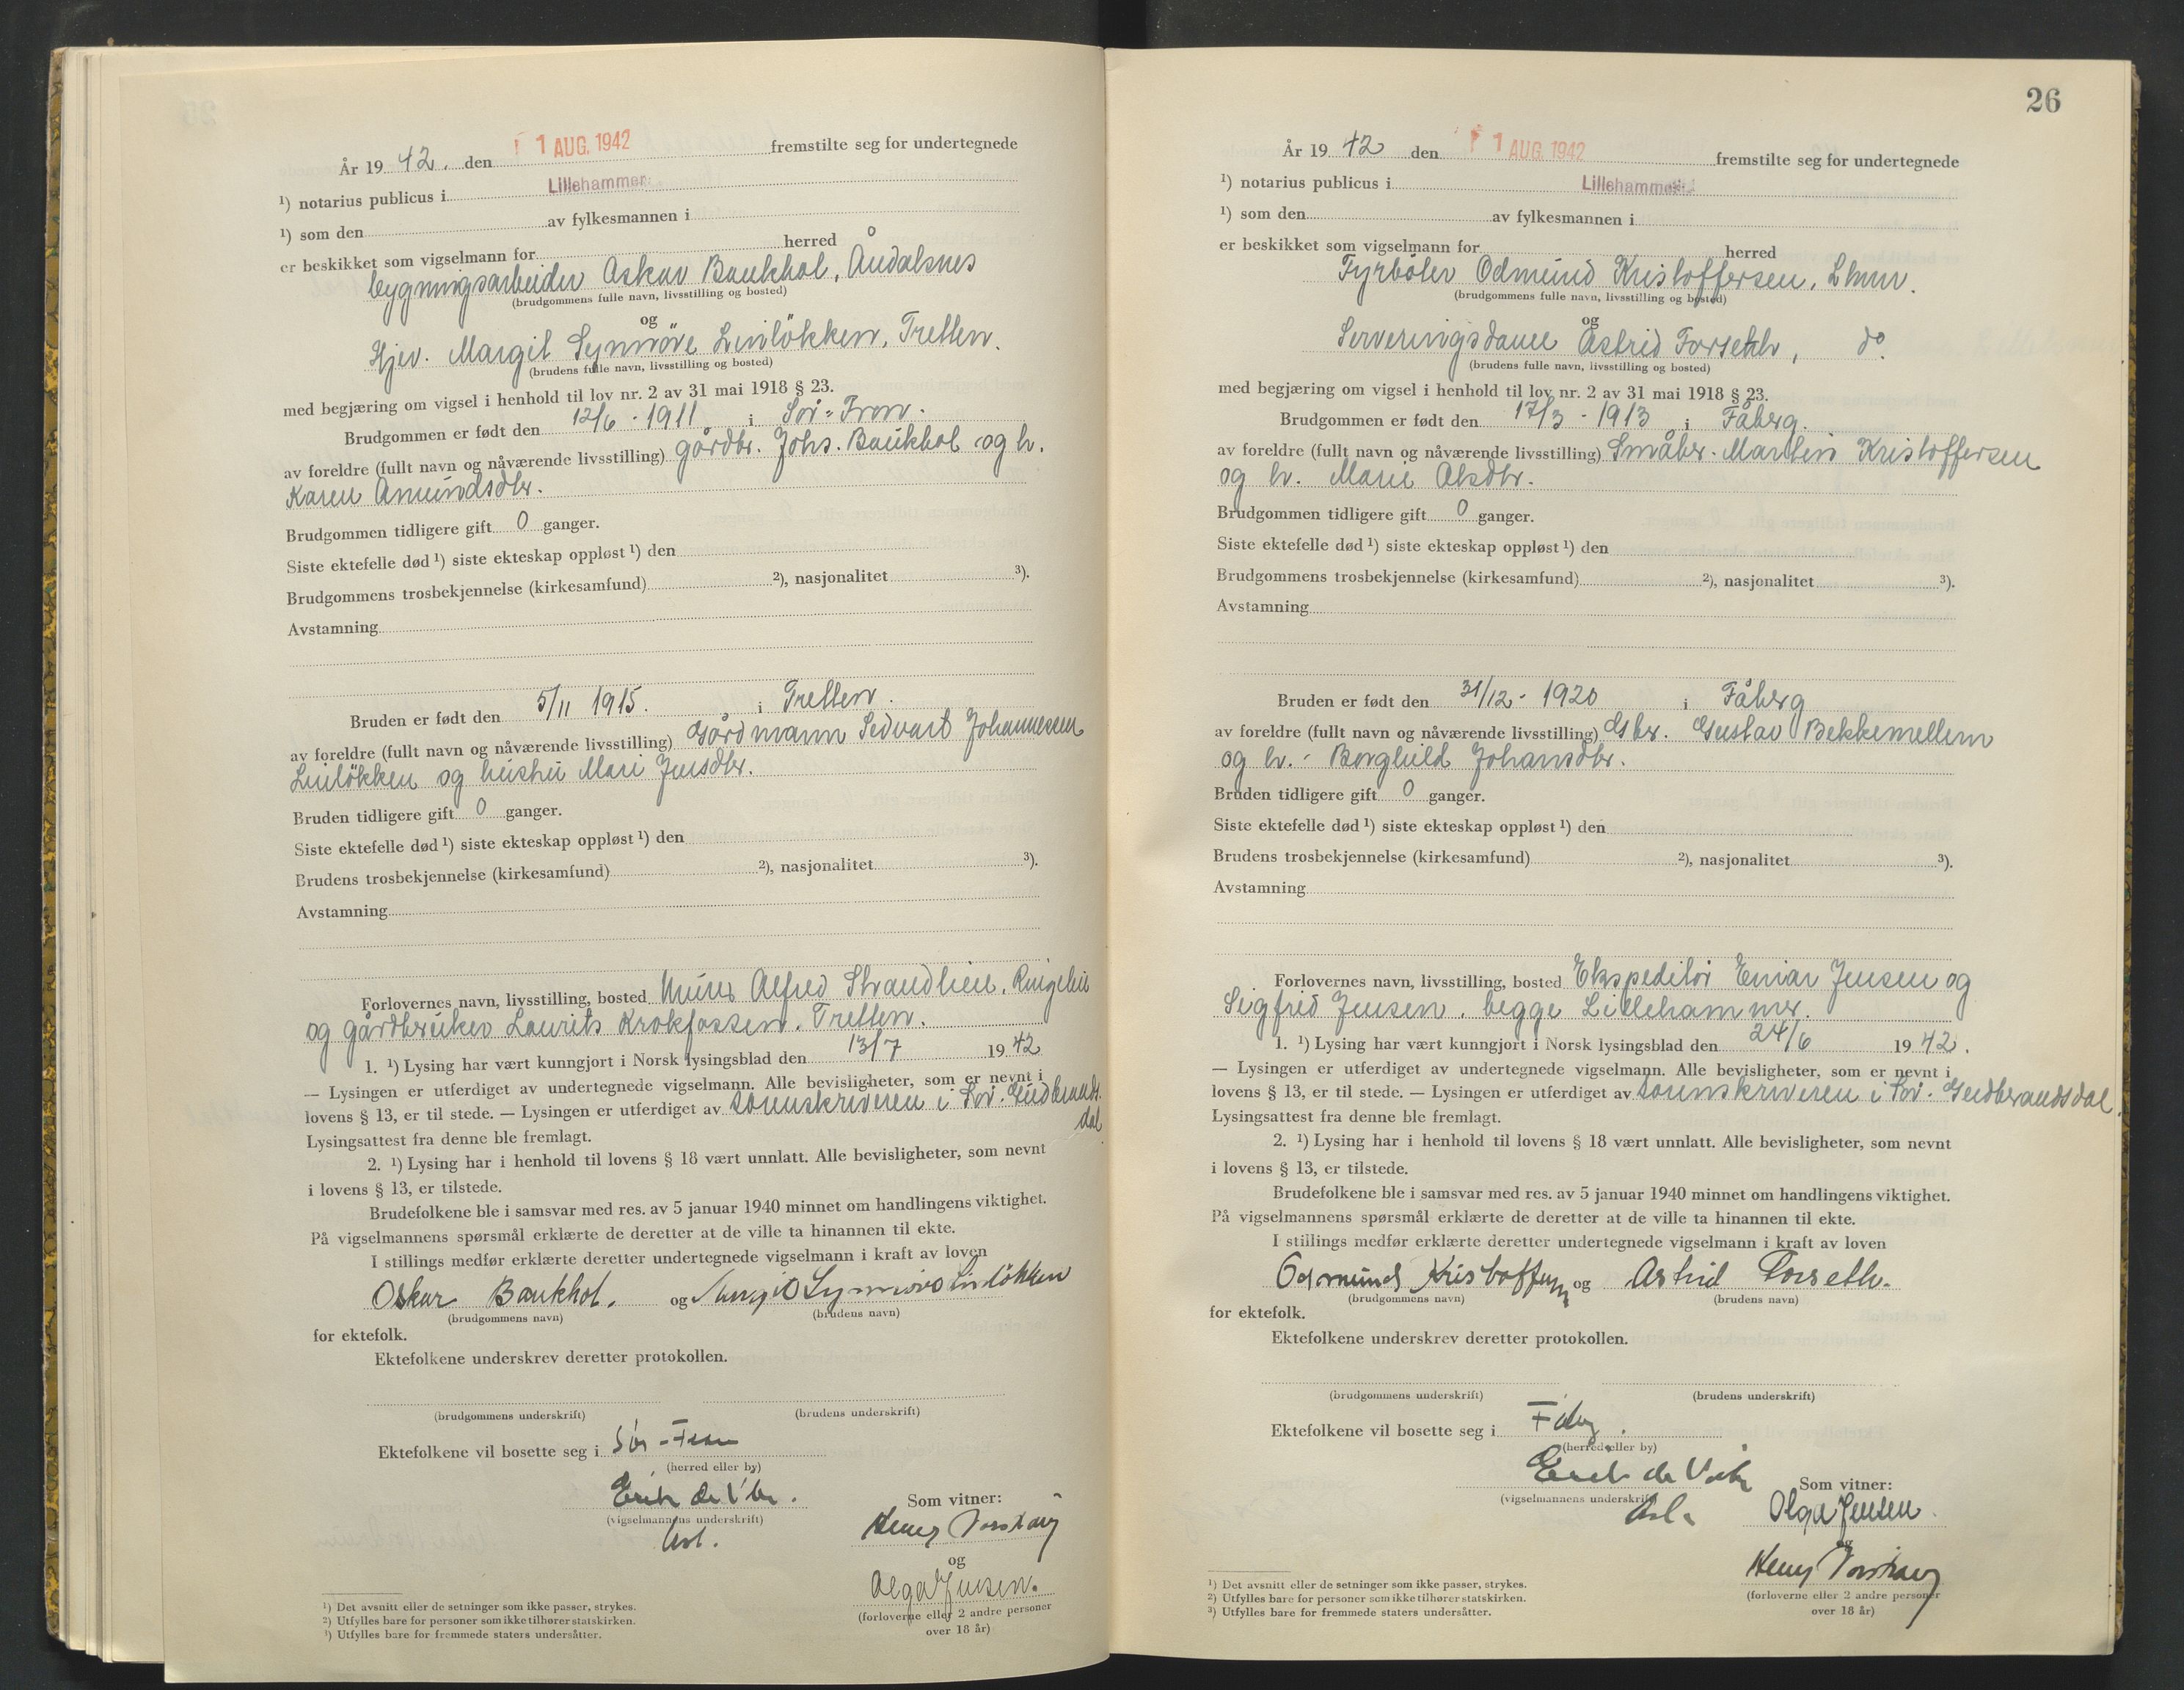 År 19 42. den 1 AUG. 1942 fremstilte seg for undertegnede
¹) notarius publicus i Lillehammer
¹) som den av fylkesmannen i
er beskikket som vigselmann for herred
bygningsarbeider Oskar Baukhol, Åndalsnes
(brudgommens fulle navn, livsstilling og bosted)
og
Hjev. Margit Synnöve Linlökken, Tretten.
(brudens fulle navn, livsstilling og bosted)
med begjæring om vigsel i henhold til lov nr. 2 av 31 mai 1918 § 23.
Brudgommen er født den 12/6 - 1911 i Sör-Fron.
av foreldre (fullt navn og nåværende livsstilling) gårdbr. Johs. Baukhol og h.
Karen Amundsdtr.
Brudgommen tidligere gift 0 ganger.
Siste ektefelle død ¹) siste ekteskap oppløst ¹) den
Brudgommens trosbekjennelse (kirkesamfund) ²), nasjonalitet ³).
Avstamning
Bruden er født den 5/11 1915. i Tretten.
av foreldre (fullt navn og nåværende livsstilling) Gårdmann Sedvart Johannessen
Linlökken og hushu Mari Jensdtr.
Bruden tidligere gift 0 ganger.
Siste ektefelle død ¹) siste ekteskap oppløst ¹) den
Brudens trosbekjennelse (kirkesamfund) ²), nasjonalitet ³).
Avstamning
Forlovernes navn, livsstilling, bosted Murer Alfred Strandlien, Ringebu
og gårdbruker Laurits Krokfossen. Tretten.
1. ¹) Lysing har vært kunngjort i Norsk lysingsblad den 13/7 19 42
— Lysingen er utferdiget av undertegnede vigselmann. Alle bevisligheter, som er nevnt i
lovens § 13, er til stede. — Lysingen er utferdiget av sorenskriveren i Sör-Gudbrands-
dal
Lysingsattest fra denne ble fremlagt.
2. ¹) Lysing har i henhold til lovens § 18 vært unnlatt. Alle bevisligheter, som nevnt
i lovens § 13, er tilstede.
Brudefolkene ble i samsvar med res. av 5 januar 1940 minnet om handlingens viktighet.
På vigselmannens spørsmål erklærte de deretter at de ville ta hinannen til ekte.
I stillings medfør erklærte deretter undertegnede vigselmann i kraft av loven
Oskar Baukhol. og Margit Synnöve Linlökken
(brudgommens navn) (brudens navn)
for ektefolk.
Ektefolkene underskrev deretter protokollen.
(brudgommens underskrift) (brudens underskrift)
Ektefolkene vil bosette seg i Sör-Fron
(herred eller by)
Erik de
(vigselmannens underskrift)
Som vitner:
Henry
og
Olga Jensen.
(forloverne eller 2 andre personer
over 18 år)
¹) Det avsnitt eller de setninger som ikke passer, strykes.
²) Utfylles bare for personer som ikke tilhører statskirken.
³) Utfylles bare for fremmede staters undersåtter.
26
År 19 42 den 1 AUG. 1942 fremstilte seg for undertegnede
¹) notarius publicus i Lillehammer
¹) som den av fylkesmannen i
er beskikket som vigselmann for herred
Fyrböter Odmund Kristoffersen, Lhmr.
(brudgommens fulle navn, livsstilling og bosted)
og
Serveringsdame Astrid Forseth, do.
(brudens fulle navn, livsstilling og bosted)
med begjæring om vigsel i henhold til lov nr. 2 av 31 mai 1918 § 23.
Brudgommen er født den 17/3 - 1913 i Fåberg.
av foreldre (fullt navn og nåværende livsstilling) Småbr. Martin Kristoffersen
og h. Marie Olsdtr.
Brudgommen tidligere gift 0 ganger.
Siste ektefelle død ¹) siste ekteskap oppløst ¹) den
Brudgommens trosbekjennelse (kirkesamfund) ²), nasjonalitet ³).
Avstamning
Bruden er født den 31/12 - 1920 i Fåberg
av foreldre (fullt navn og nåværende livsstilling) Gbr. Gustav Bekkemellem
og h. - Borghild Johansdtr.
Bruden tidligere gift 0 ganger.
Siste ektefelle død ¹) siste ekteskap oppløst ¹) den
Brudens trosbekjennelse (kirkesamfund) ²), nasjonalitet ³).
Avstamning
Forlovernes navn, livsstilling, bosted Ekspeditör Einar Jensen og
Sigfred Jensen, begge Lillehammer.
1. ¹) Lysing har vært kunngjort i Norsk lysingsblad den 24/6 19 42.
— Lysingen er utferdiget av undertegnede vigselmann. Alle bevisligheter, som er nevnt i
lovens § 13, er til stede. — Lysingen er utferdiget av sorenskriveren i Sör-Gudbrandsdal.
Lysingsattest fra denne ble fremlagt.
2. ¹) Lysing har i henhold til lovens § 18 vært unnlatt. Alle bevisligheter, som nevnt
i lovens § 13, er tilstede.
Brudefolkene ble i samsvar med res. av 5 januar 1940 minnet om handlingens viktighet.
På vigselmannens spørsmål erklærte de deretter at de ville ta hinannen til ekte.
I stillings medfør erklærte deretter undertegnede vigselmann i kraft av loven
Odmund Kristoffersen og Astrid Forseth.
(brudgommens navn) (brudens navn)
for ektefolk.
Ektefolkene underskrev deretter protokollen.
(brudgommens underskrift) (brudens underskrift)
Ektefolkene vil bosette seg i Fåberg.
(herred eller by)
Erik de
(vigselmannens underskrift)
Som vitner:
Olga Jensen.
og
Henry
(forloverne eller 2 andre personer
over 18 år)
¹) Det avsnitt eller de setninger som ikke passer, strykes.
²) Utfylles bare for personer som ikke tilhører statskirken.
³) Utfylles bare for fremmede staters undersåtter.